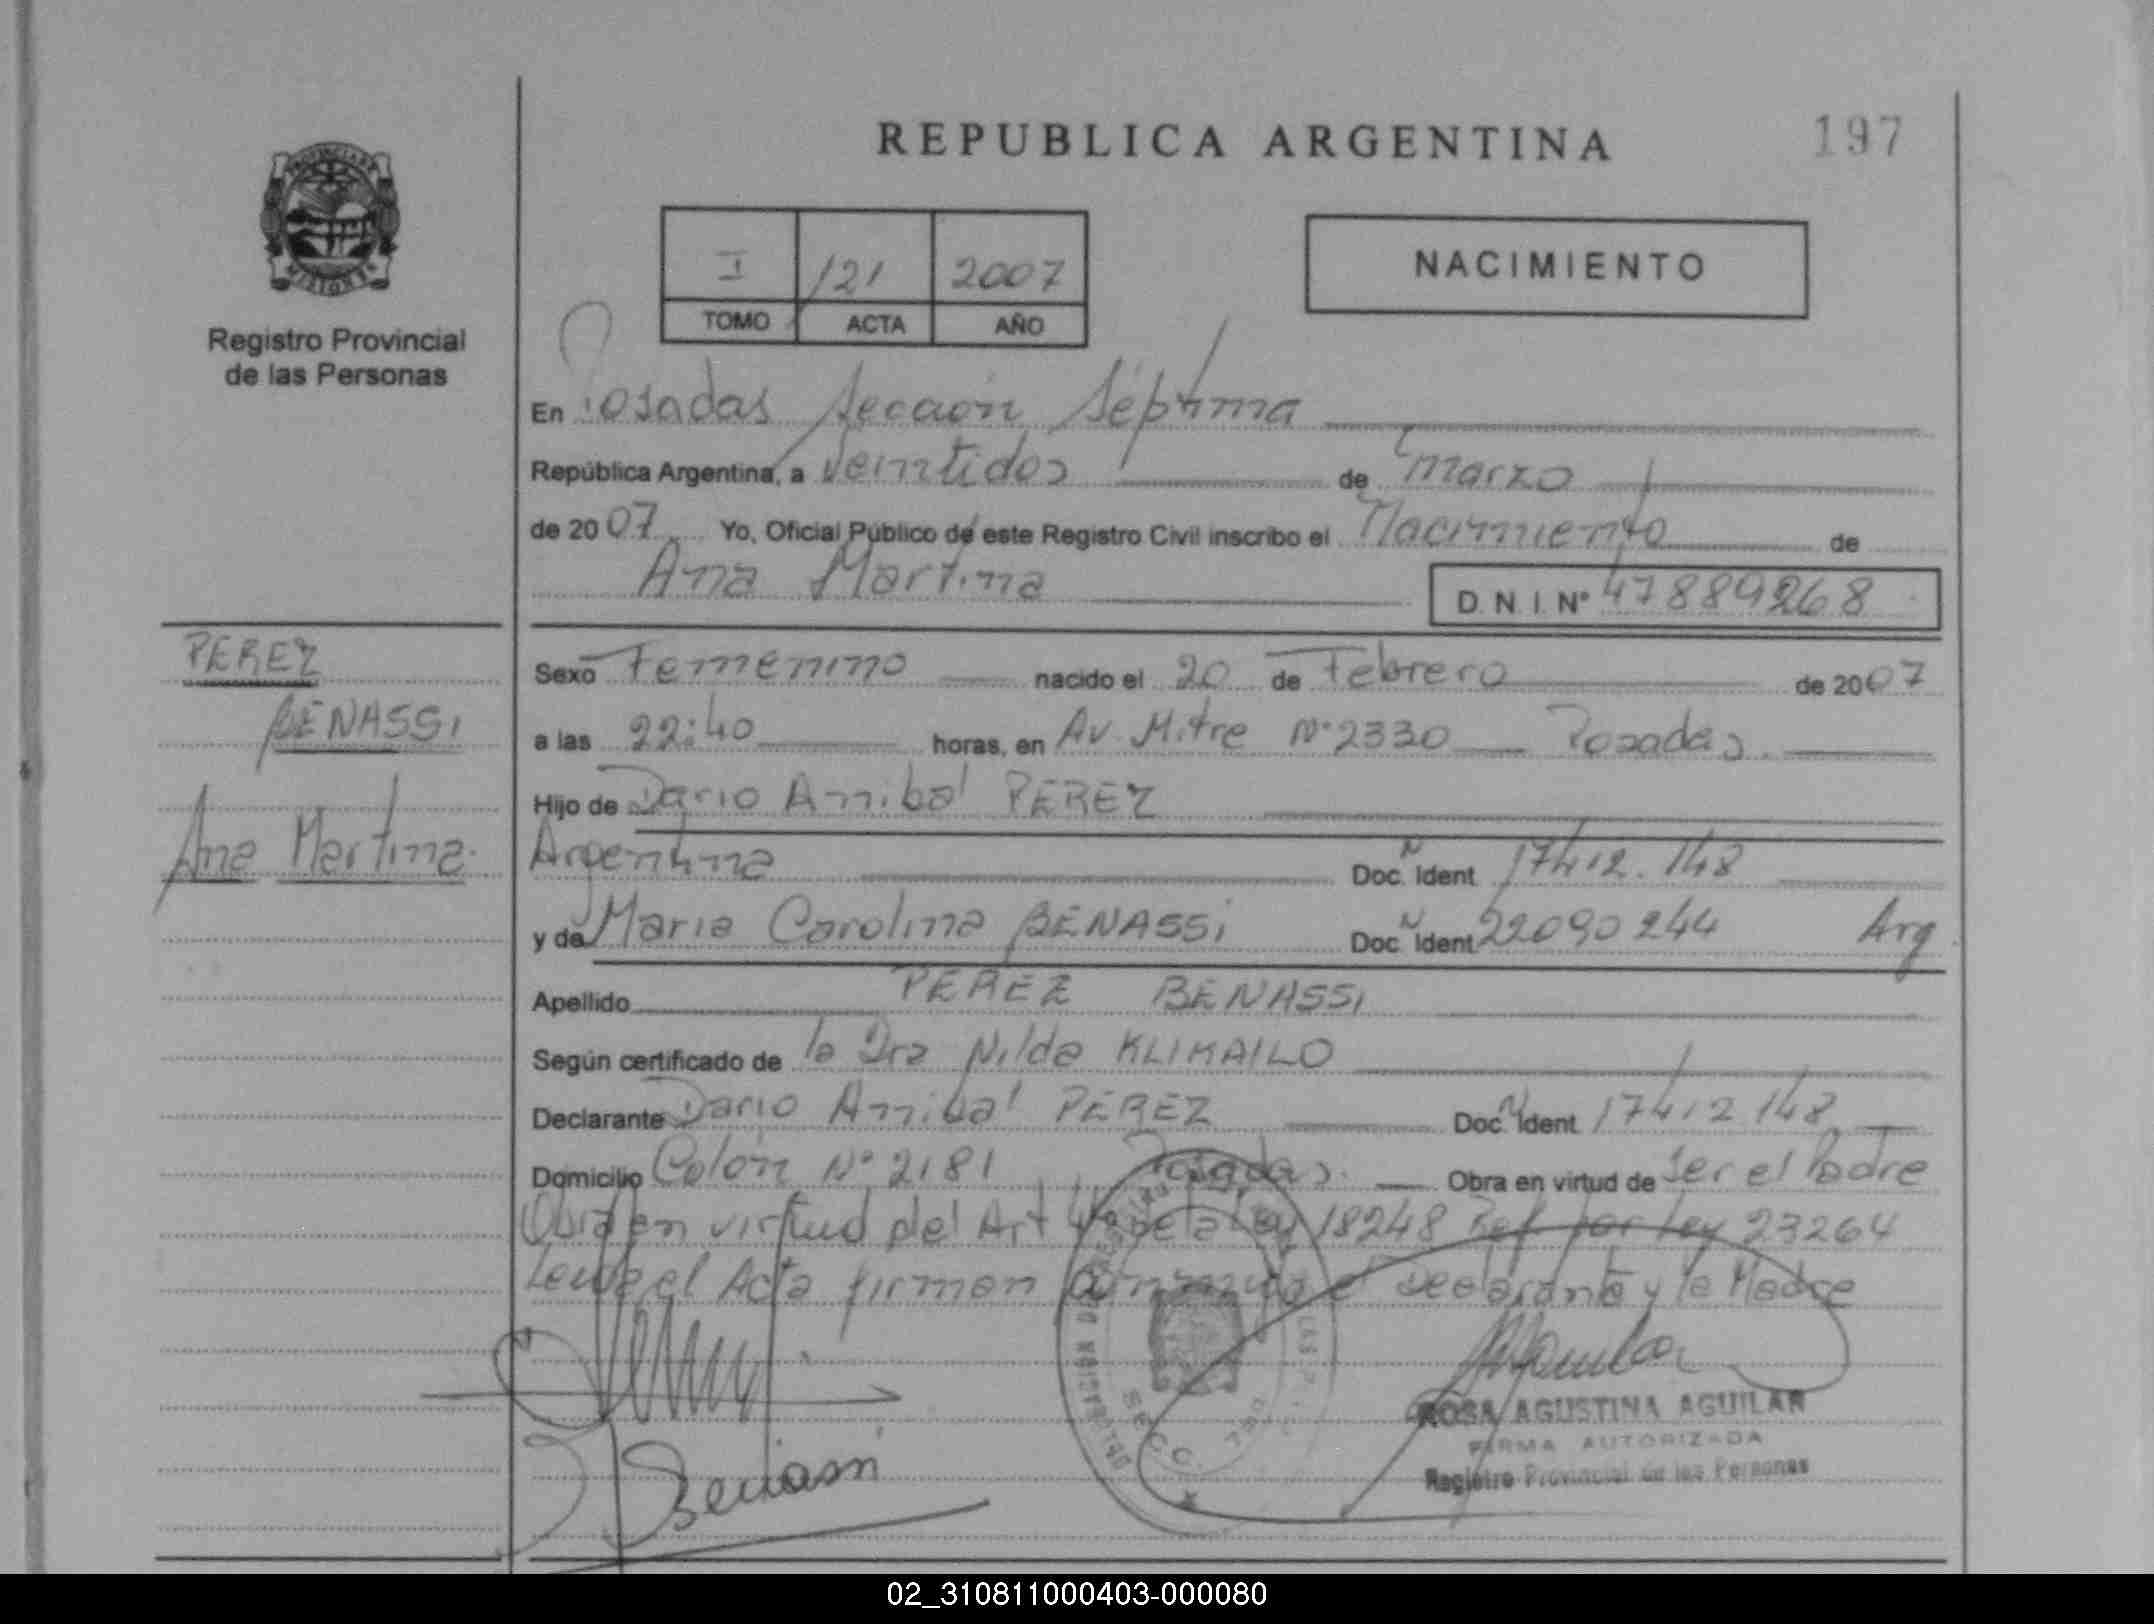 REPUBLICA ARGENTINA
197
PROVINCIA DE
MISIONES
Registro Provincial
de las Personas
I 121 2007
TOMO ACTA AÑO
NACIMIENTO
En Posadas Sección Séptima
República Argentina, a veintidos de marzo
de 2007 Yo, Oficial Público de este Registro Civil inscribo el Nacimiento de
Ana Martina D.N.I. Nº 47889268
PEREZ
BENASSI
Ana Martina
Sexo Femenino nacido el 20 de Febrero de 2007
a las 22:40 horas, en Av. Mitre Nº 2330 Posadas
Hijo de Dario Anibal PEREZ
Argentina Doc. N Ident 17412.148
y de Maria Carolina BENASSI Doc. N Ident 22090244 Arg
Apellido PEREZ BENASSI
Según certificado de la Dra Nilda KLIMAILO
Declarante Dario Anibal PEREZ Doc. N Ident 17412148
Domicilio Colón Nº 2181 Posadas. Obra en virtud de ser el Padre
Obra en virtud del Art 4º de la Ley 18248 Ref por Ley 23264
Leida el Acta firman conmigo el Declarante y la Madre
Benassi
ROSA AGUSTINA AGUILAR
FIRMA AUTORIZADA
Registro Provincial de las Personas
02_310811000403-000080